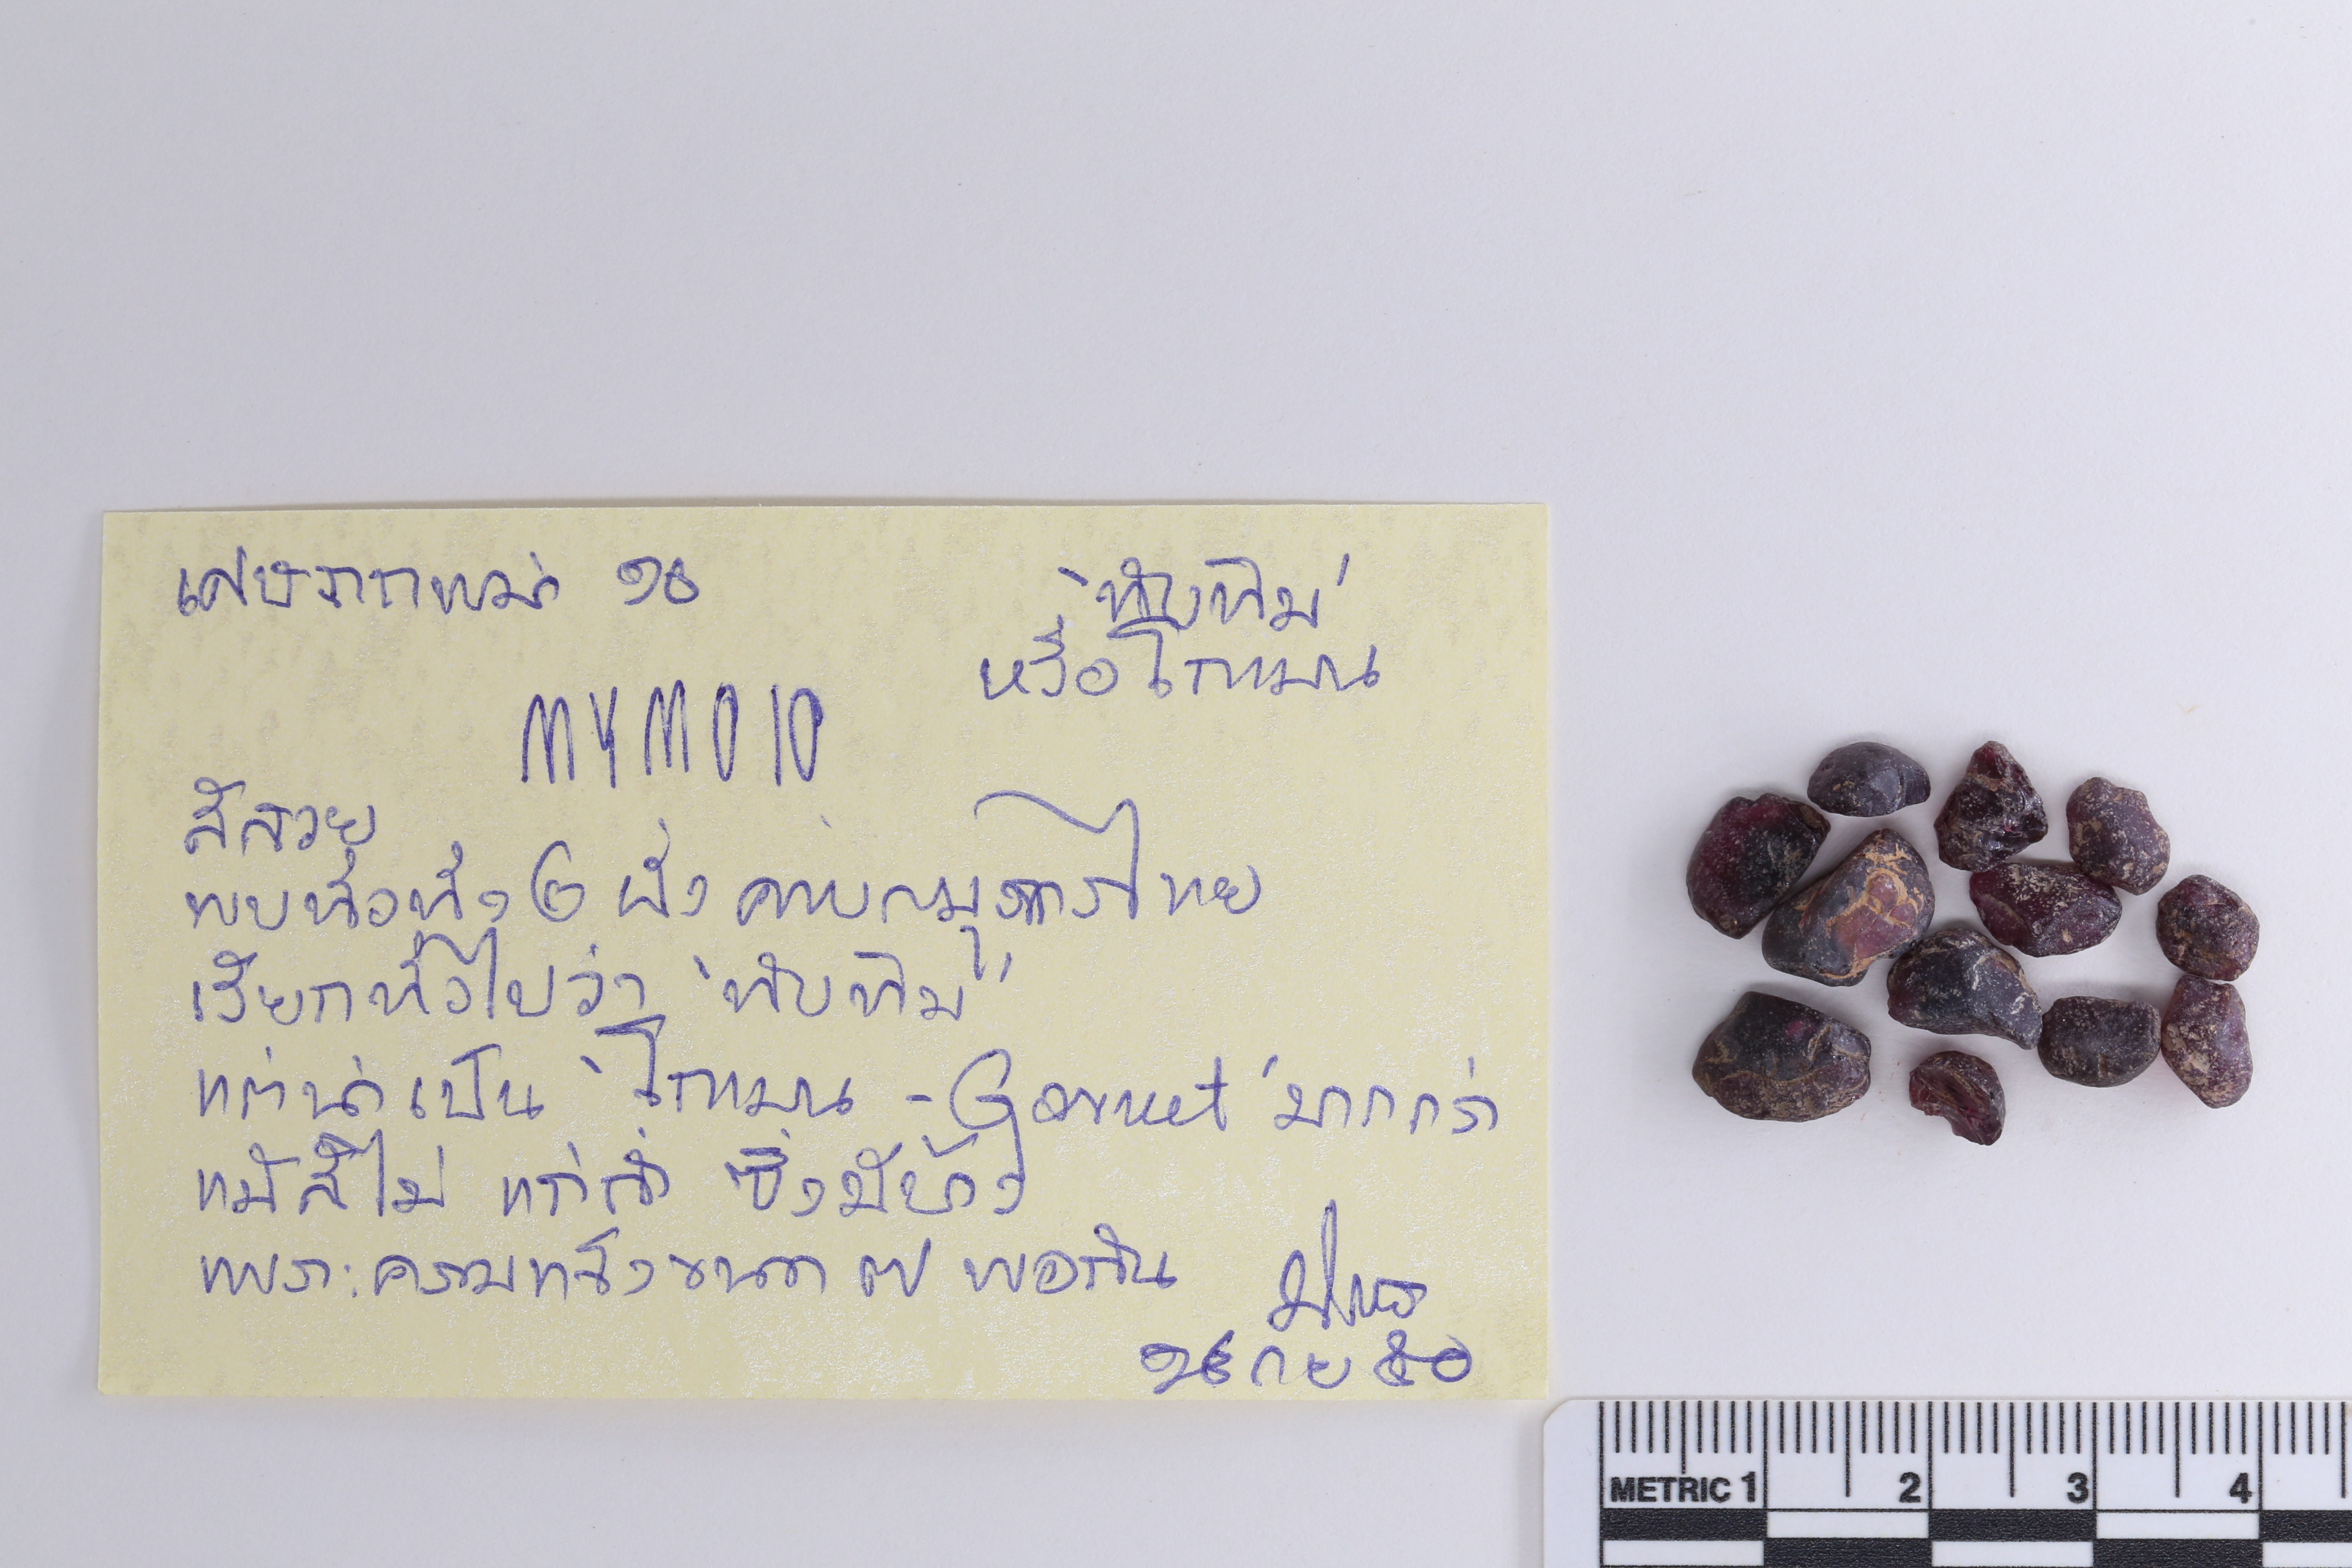 เศษจากพม่า ๑๐
'ทับทิม'
หรือโกเมน
MYM010
สีสวย
พบทั่วทั้ง ๒ ฝั่ง คาบสมุทรไทย
เรียกทั่วไปว่า 'ทับทิม'
แต่น่าเป็น 'โกเมน - Garnet' มากกว่า
แม้สีไม่ แก่ก่ำ ซึ่งมีบ้าง
เพราะความแข็งขนาด ๗ พอกัน
๑๕ กย ๕๐
METRIC 1 2 3 4